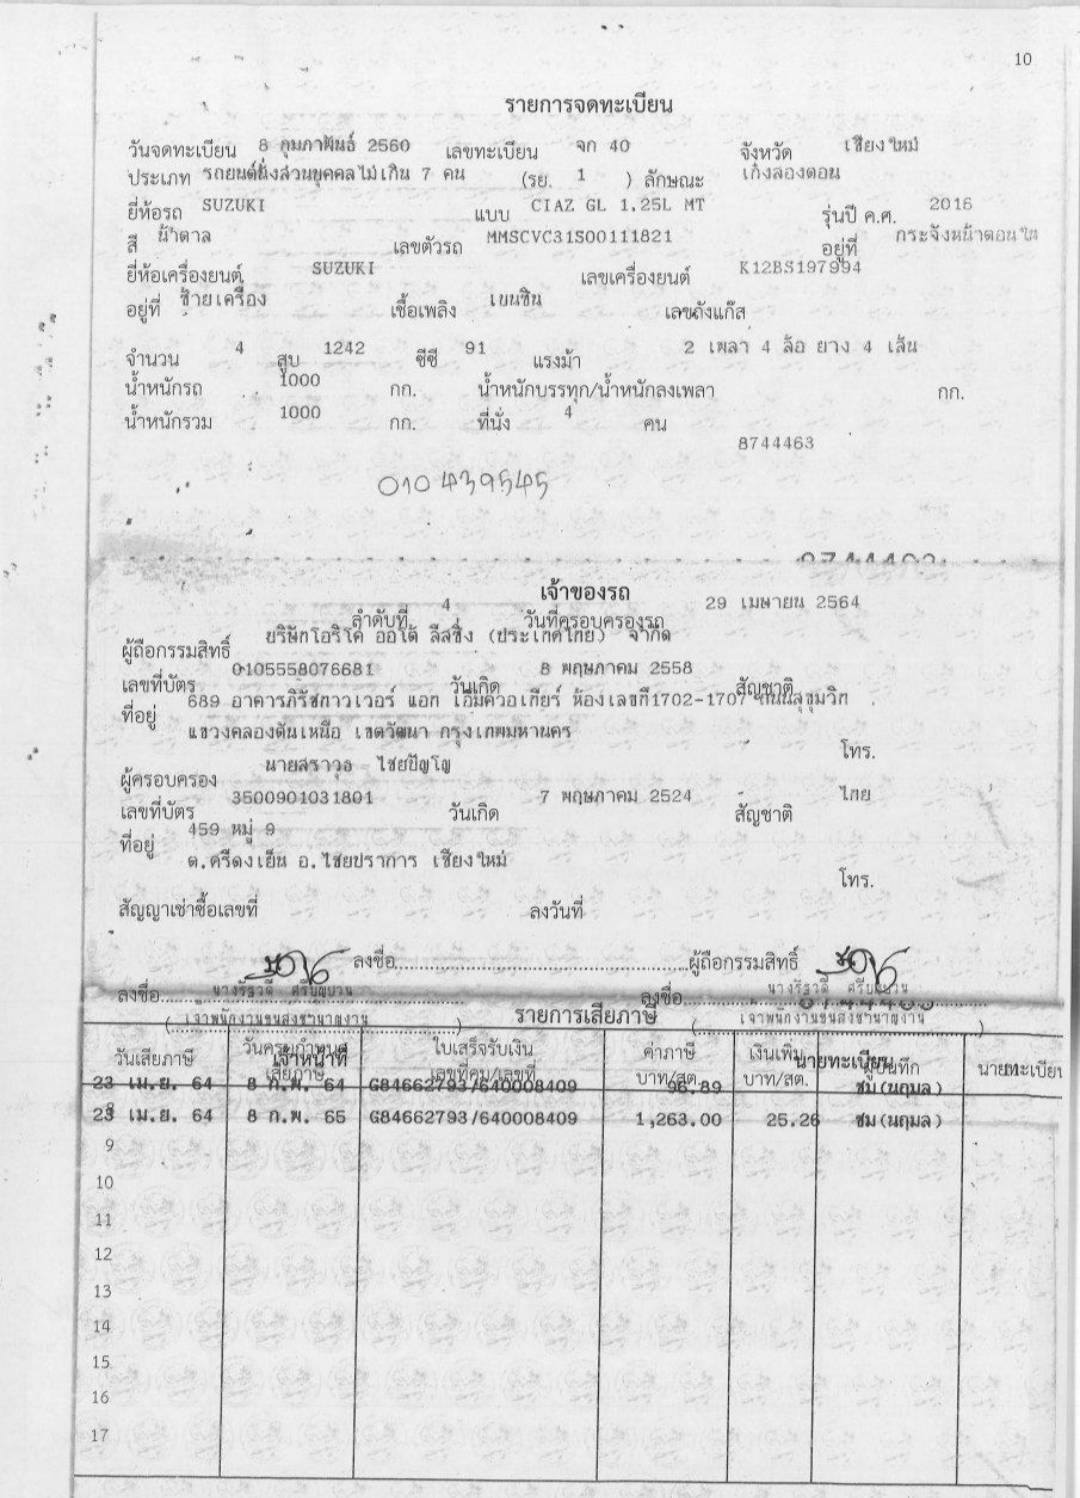 10
รายการจดทะเบียน
วันจดทะเบียน 8 กุมภาพันธ์ 2560 เลขทะเบียน จก 40 จังหวัด เชียงใหม่
ประเภท รถยนต์นั่งส่วนบุคคลไม่เกิน 7 คน (รย. 1 ) ลักษณะ เก๋งสองตอน
ยี่ห้อรถ SUZUKI แบบ CIAZ GL 1.25L MT รุ่นปี ค.ศ. 2016
สี น้ำตาล เลขตัวรถ MMSCVC31S00111821 อยู่ที่ กระจังหน้าตอนใน
ยี่ห้อเครื่องยนต์ SUZUKI เลขเครื่องยนต์ K12BS197994
อยู่ที่ ซ้ายเครื่อง เชื้อเพลิง เบนซิน เลขถังแก๊ส
จำนวน 4 สูบ 1242 ซีซี 91 แรงม้า 2 เพลา 4 ล้อ ยาง 4 เส้น
น้ำหนักรถ 1000 กก. น้ำหนักบรรทุก/น้ำหนักลงเพลา กก.
น้ำหนักรวม 1000 กก. ที่นั่ง 4 คน
8744463
010439545
เจ้าของรถ
ลำดับที่ 4 วันที่ครอบครองรถ 29 เมษายน 2564
ผู้ถือกรรมสิทธิ์ บริษัทโอริโค่ ออโต้ ลีสซิ่ง (ประเทศไทย) จำกัด
เลขที่บัตร 0105558076681 วันเกิด 8 พฤษภาคม 2558 สัญชาติ
ที่อยู่ 689 อาคารภิรัชทาวเวอร์ แอท เอ็มควอเทียร์ ห้องเลขที่1702-1707 ถนนสุขุมวิท
แขวงคลองตันเหนือ เขตวัฒนา กรุงเทพมหานคร โทร.
ผู้ครอบครอง นายสราวุธ ไชยปัญโญ
เลขที่บัตร 3500901031801 วันเกิด 7 พฤษภาคม 2524 สัญชาติ ไทย
ที่อยู่ 459 หมู่ 9
ต.ศรีดงเย็น อ.ไชยปราการ เชียงใหม่ โทร.
สัญญาเช่าซื้อเลขที่ ลงวันที่
ลงชื่อ ผู้ถือกรรมสิทธิ์
ลงชื่อ ลงชื่อ
เจ้าพนักงานขนส่งชำนาญงาน รายการเสียภาษี เจ้าพนักงานขนส่งชำนาญงาน
เจ้าหน้าที่ นายทะเบียน
วันเสียภาษี วันครบกำหนดเสียภาษี ใบเสร็จรับเงิน เลขที่คุม/เลขที่ ค่าภาษี บาท/สต. เงินเพิ่ม บาท/สต. ผู้บันทึก นายทะเบียน
23 เม.ย. 64 8 ก.พ. 64 G84662793/640008409 96.89 ชม(นฤมล)
23 เม.ย. 64 8 ก.พ. 65 G84662793/640008409 1,263.00 25.26 ชม(นฤมล)
9
10
11
12
13
14
15
16
17